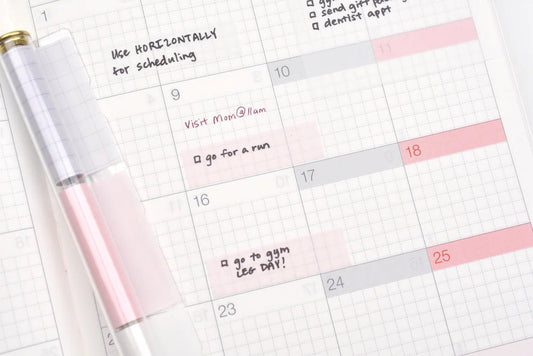 1
□ send gift
□ dentist appt
USE HORIZONTALLY
for scheduling
9
10
11
Visit Mom@11am
□ go for a run
16
17
18
□ go to gym
LEG DAY!
23
24
25